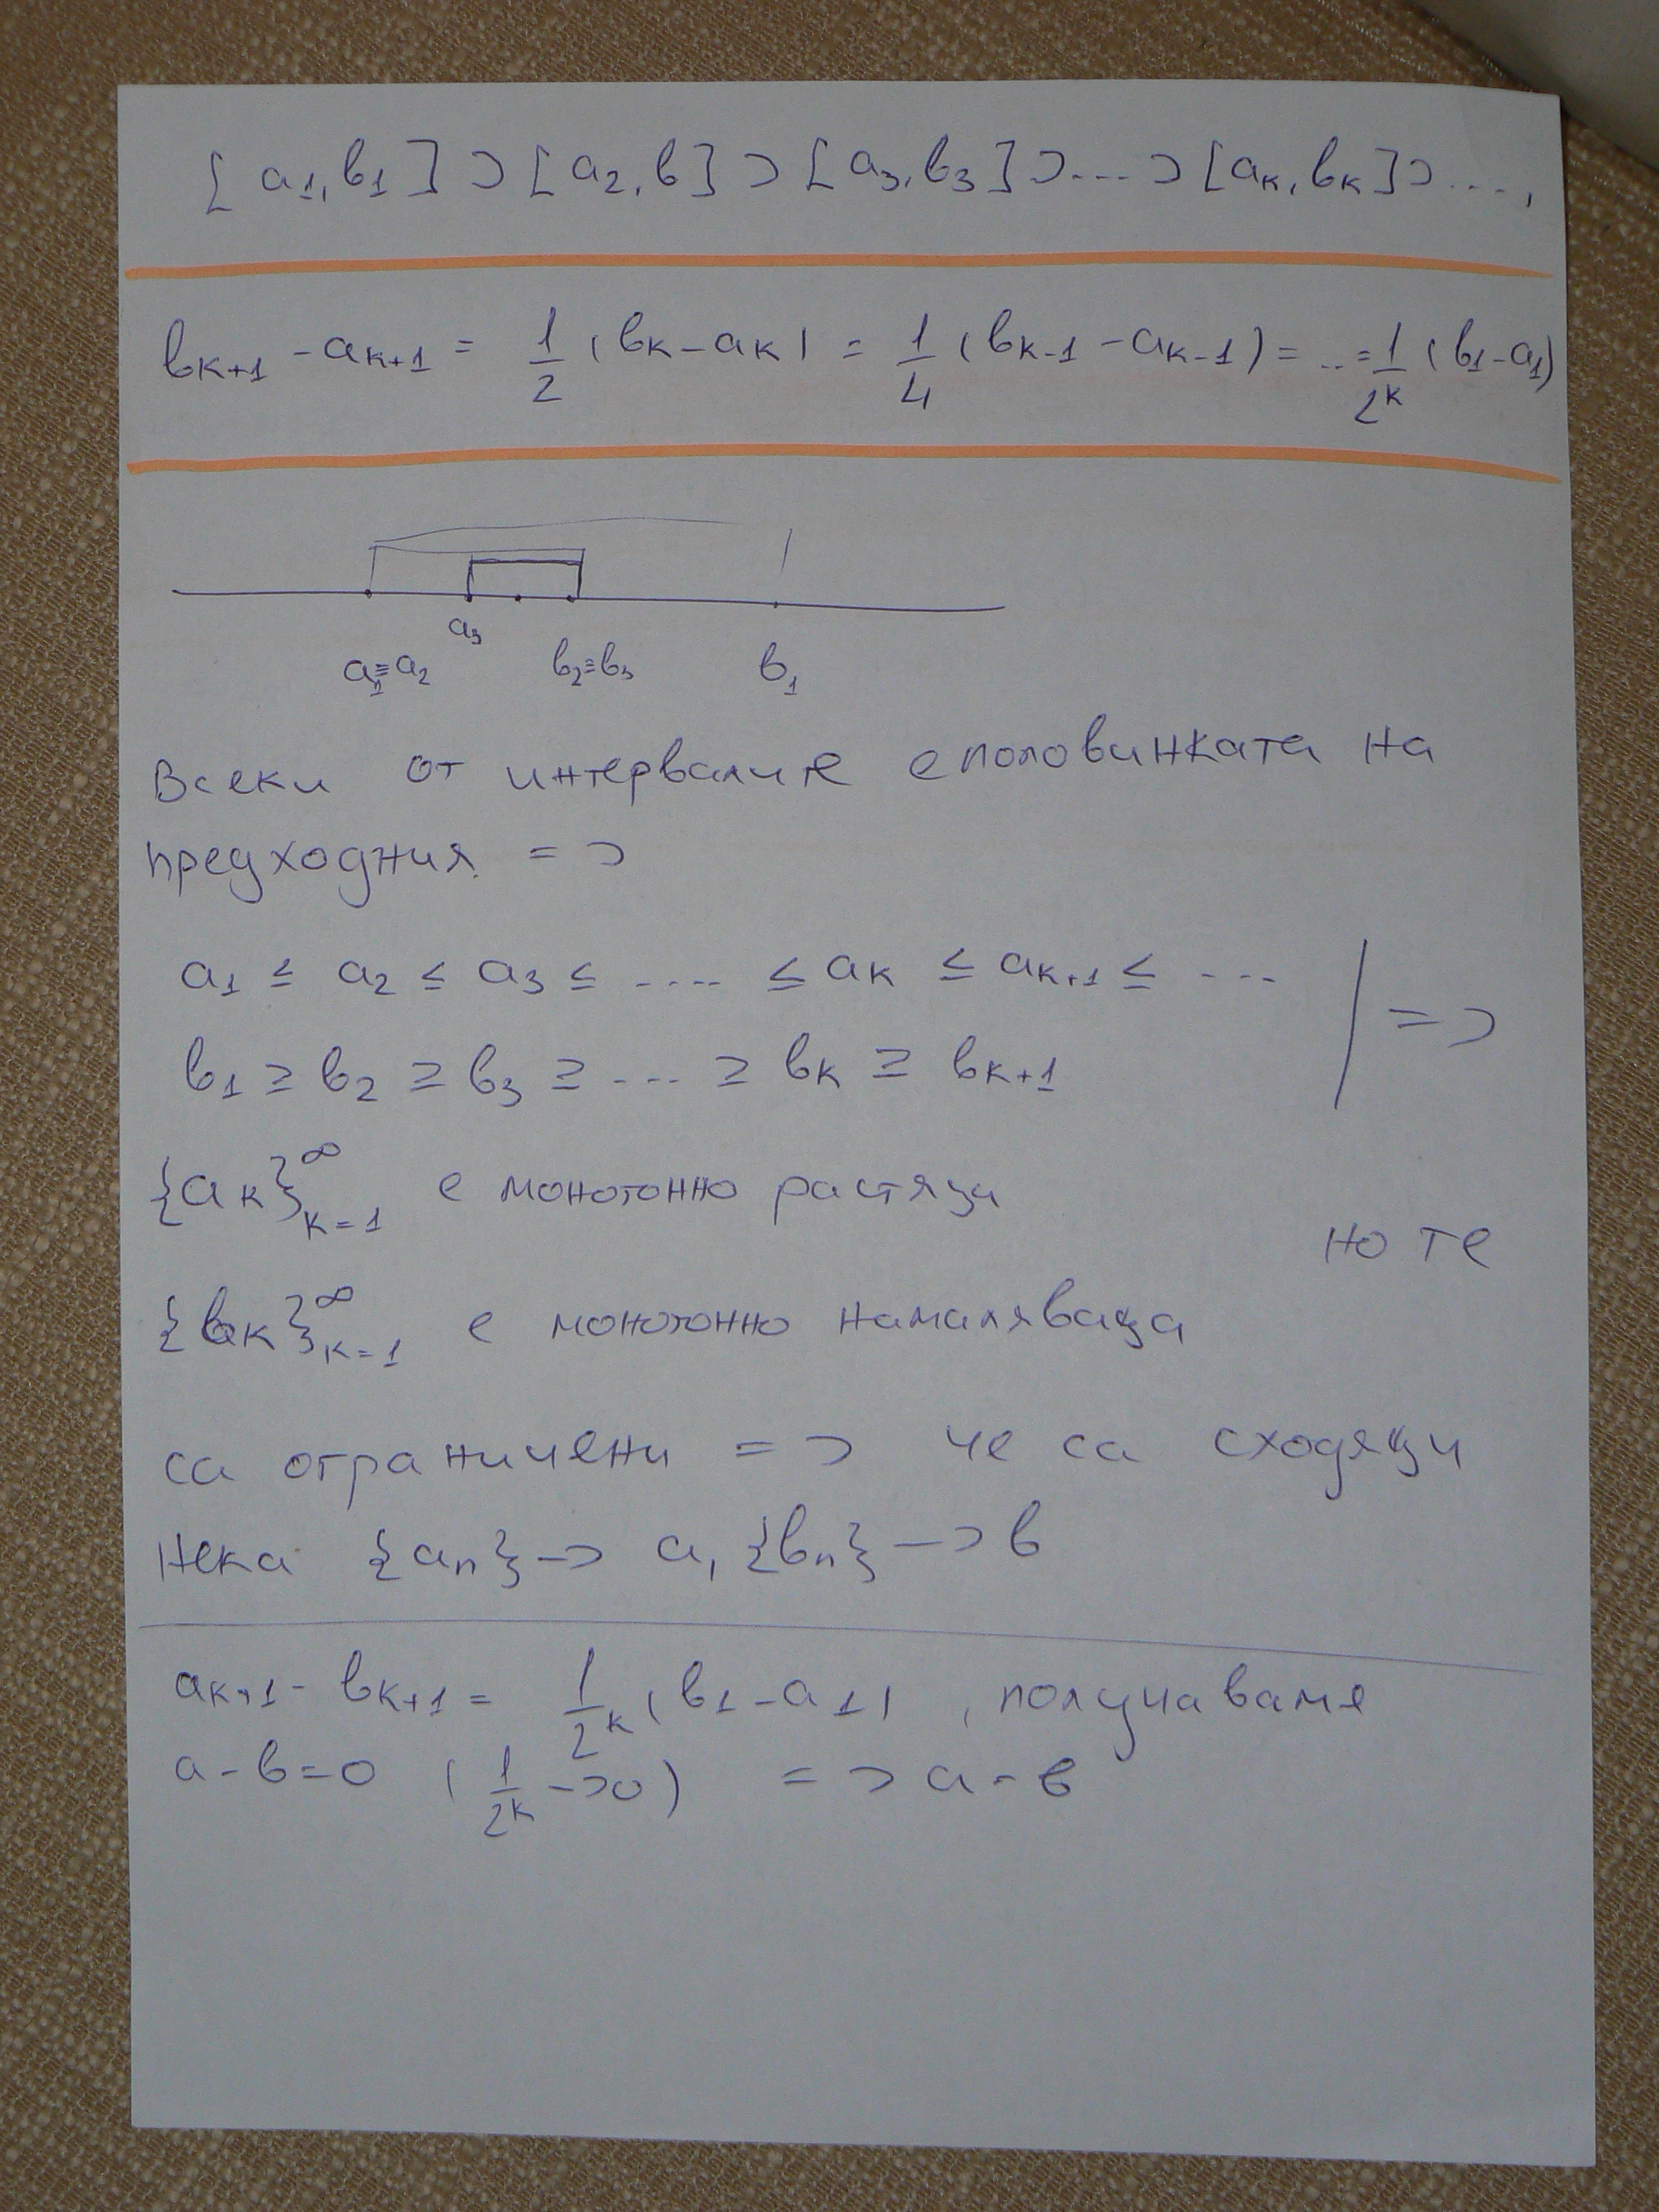 [a₁, b₁] ⊃ [a₂, b] ⊃ [a₃, b₃] ⊃ ... ⊃ [aₖ, bₖ] ⊃ ...,
bₖ₊₁ - aₖ₊₁ = 1/2 (bₖ - aₖ) = 1/4 (bₖ₋₁ - aₖ₋₁) = ... = 1/2ᵏ (b₁ - a₁)
a₃
a₁ ≡ a₂ b₂ ≡ b₃ b₁
Всеки от интервалите е половинката на
предходния =>
a₁ ≤ a₂ ≤ a₃ ≤ .... ≤ aₖ ≤ aₖ₊₁ ≤ ...
=>
b₁ ≥ b₂ ≥ b₃ ≥ ... ≥ bₖ ≥ bₖ₊₁
{aₖ}∞ₖ₌₁ е монотонно растящи
но те
{bₖ}∞ₖ₌₁ е монотонно намаляваща
са ограничени => че са сходящи
Нека {aₙ} -> a, {bₙ} -> b
aₖ₊₁ - bₖ₊₁ = 1/2ᵏ (b₁ - a₁), получаваме
a - b = 0 (1/2ᵏ -> 0) => a = b